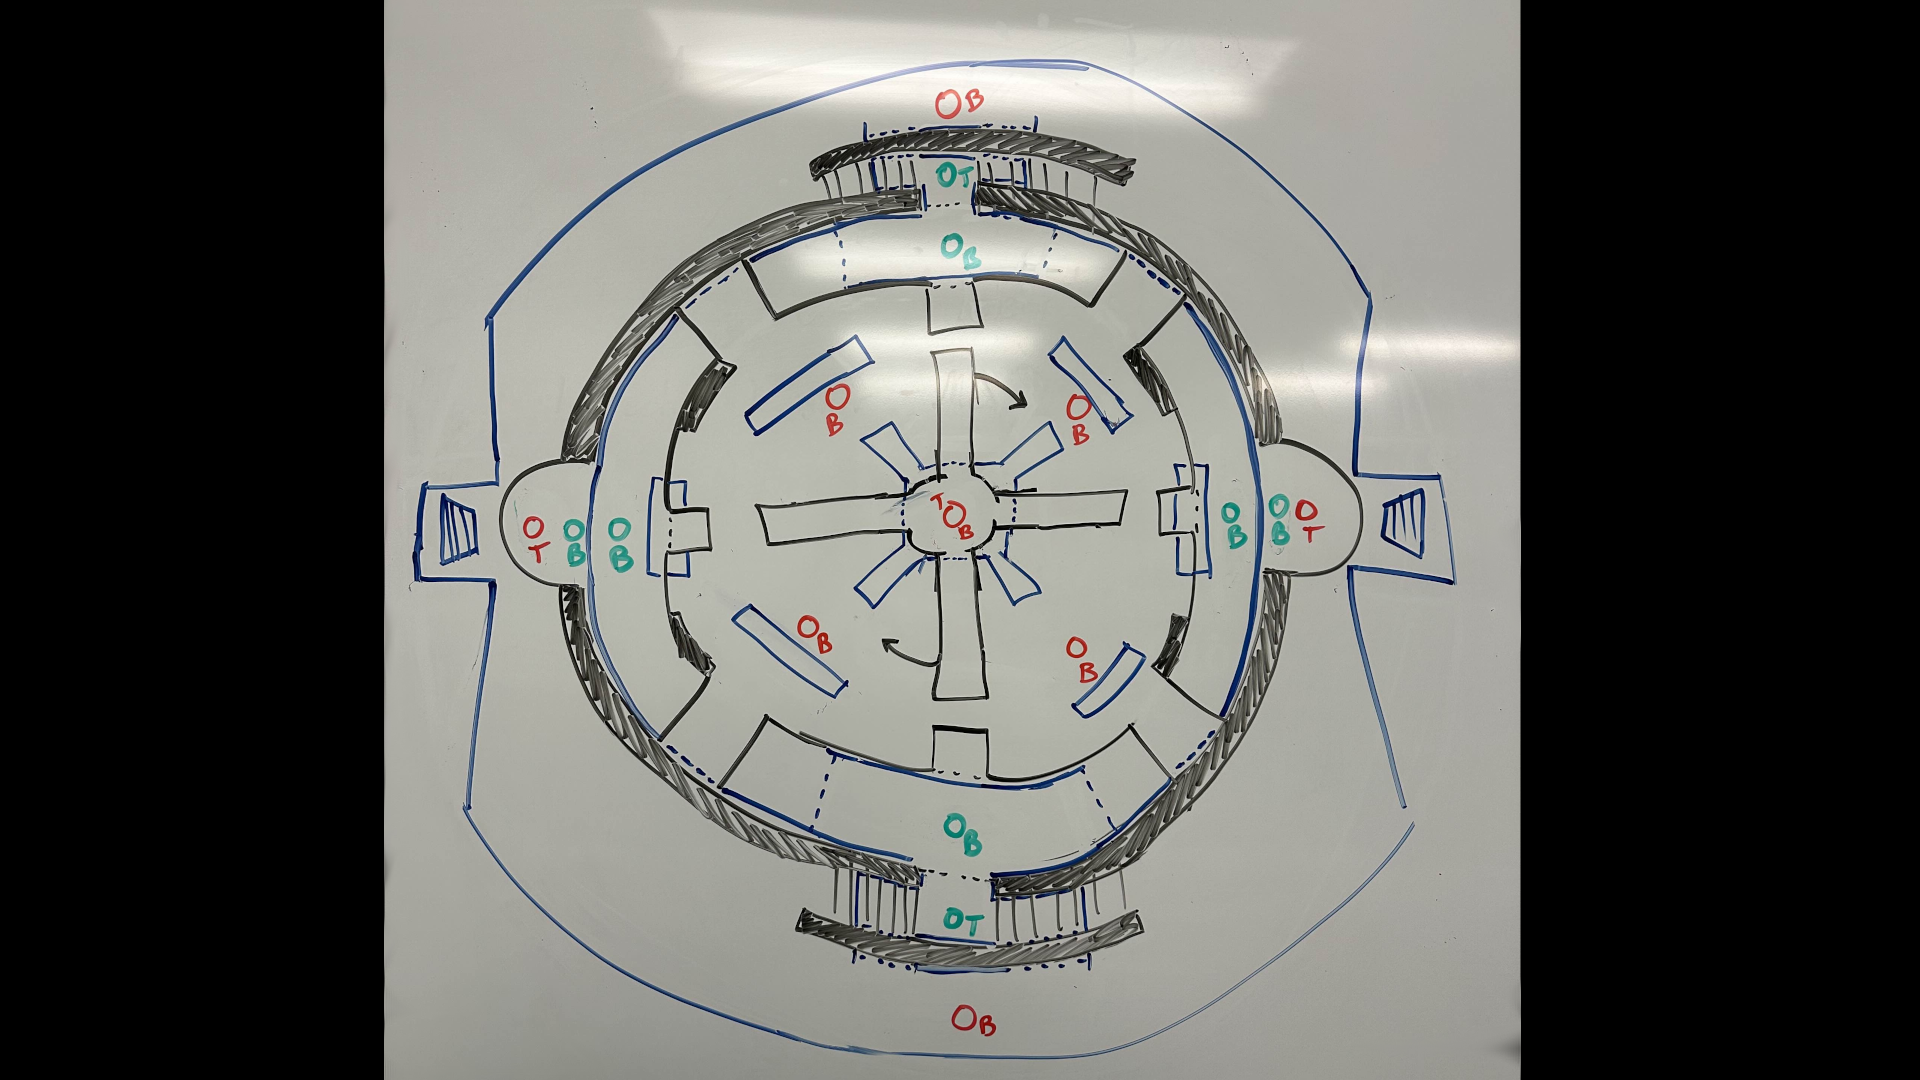 OB
OT
OB
O
B
O
B
T
O
B
O
T
O
B
O
B
O
B
O
B
O
T
O
B
O
B
OB
OT
OB